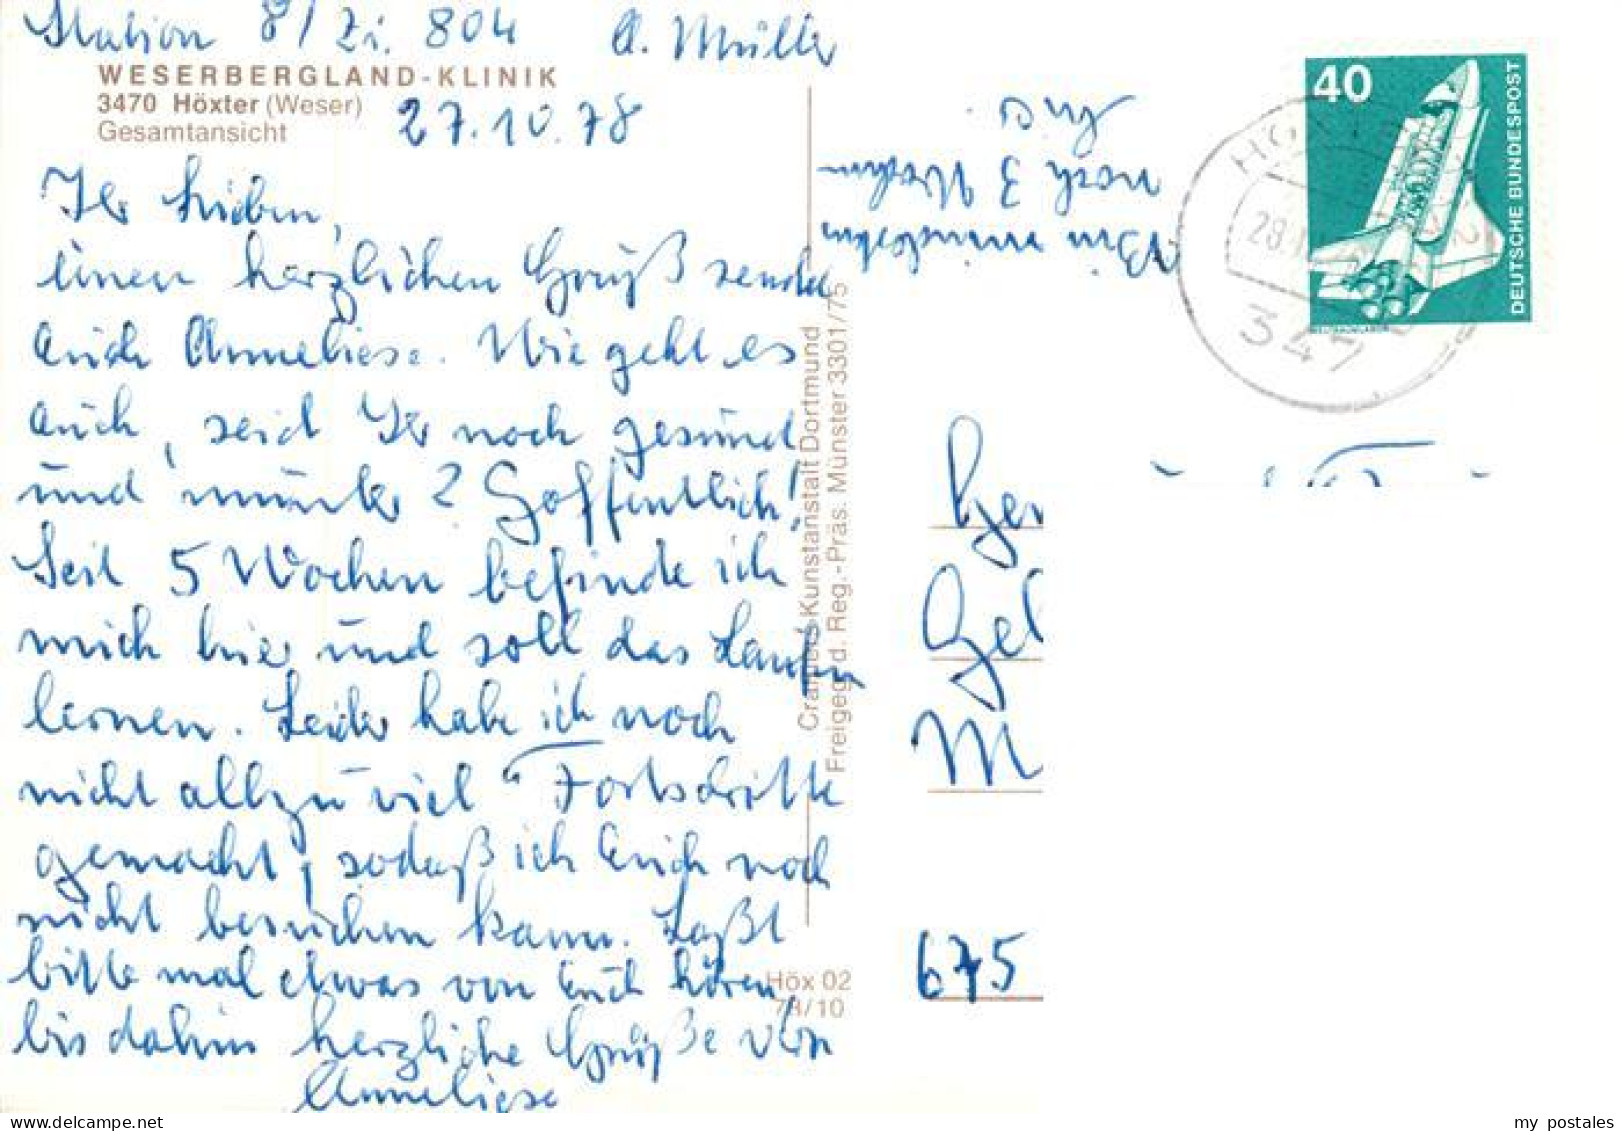 Station 8/Zi. 804 A. Müller
WESERBERGLAND-KLINIK
3470 Höxter (Weser)
Gesamtansicht
27.10.78
Ihr Lieben,
einen herzlichen Gruß sendet
Euch Anneliese. Wie geht es
Euch, seid Ihr noch gesund
und munter? Hoffentlich!
Seit 5 Wochen befinde ich
mich hier und soll das Laufen
lernen. Leider habe ich noch
nicht allzu viel Fortschritte
gemacht, sodaß ich Euch noch
nicht besuchen kann. Laßt
bitte mal etwas von Euch hören,
bis dahin herzliche Grüße von
Anneliese
Bin mindestens
noch 3 Wochen
hier.
Cramers Kunstanstalt Dortmund
Freigeg. d. Reg.-Präs. Münster 3301/75
Höx 02
78/10
40
DEUTSCHE BUNDESPOST
347
675
my postales